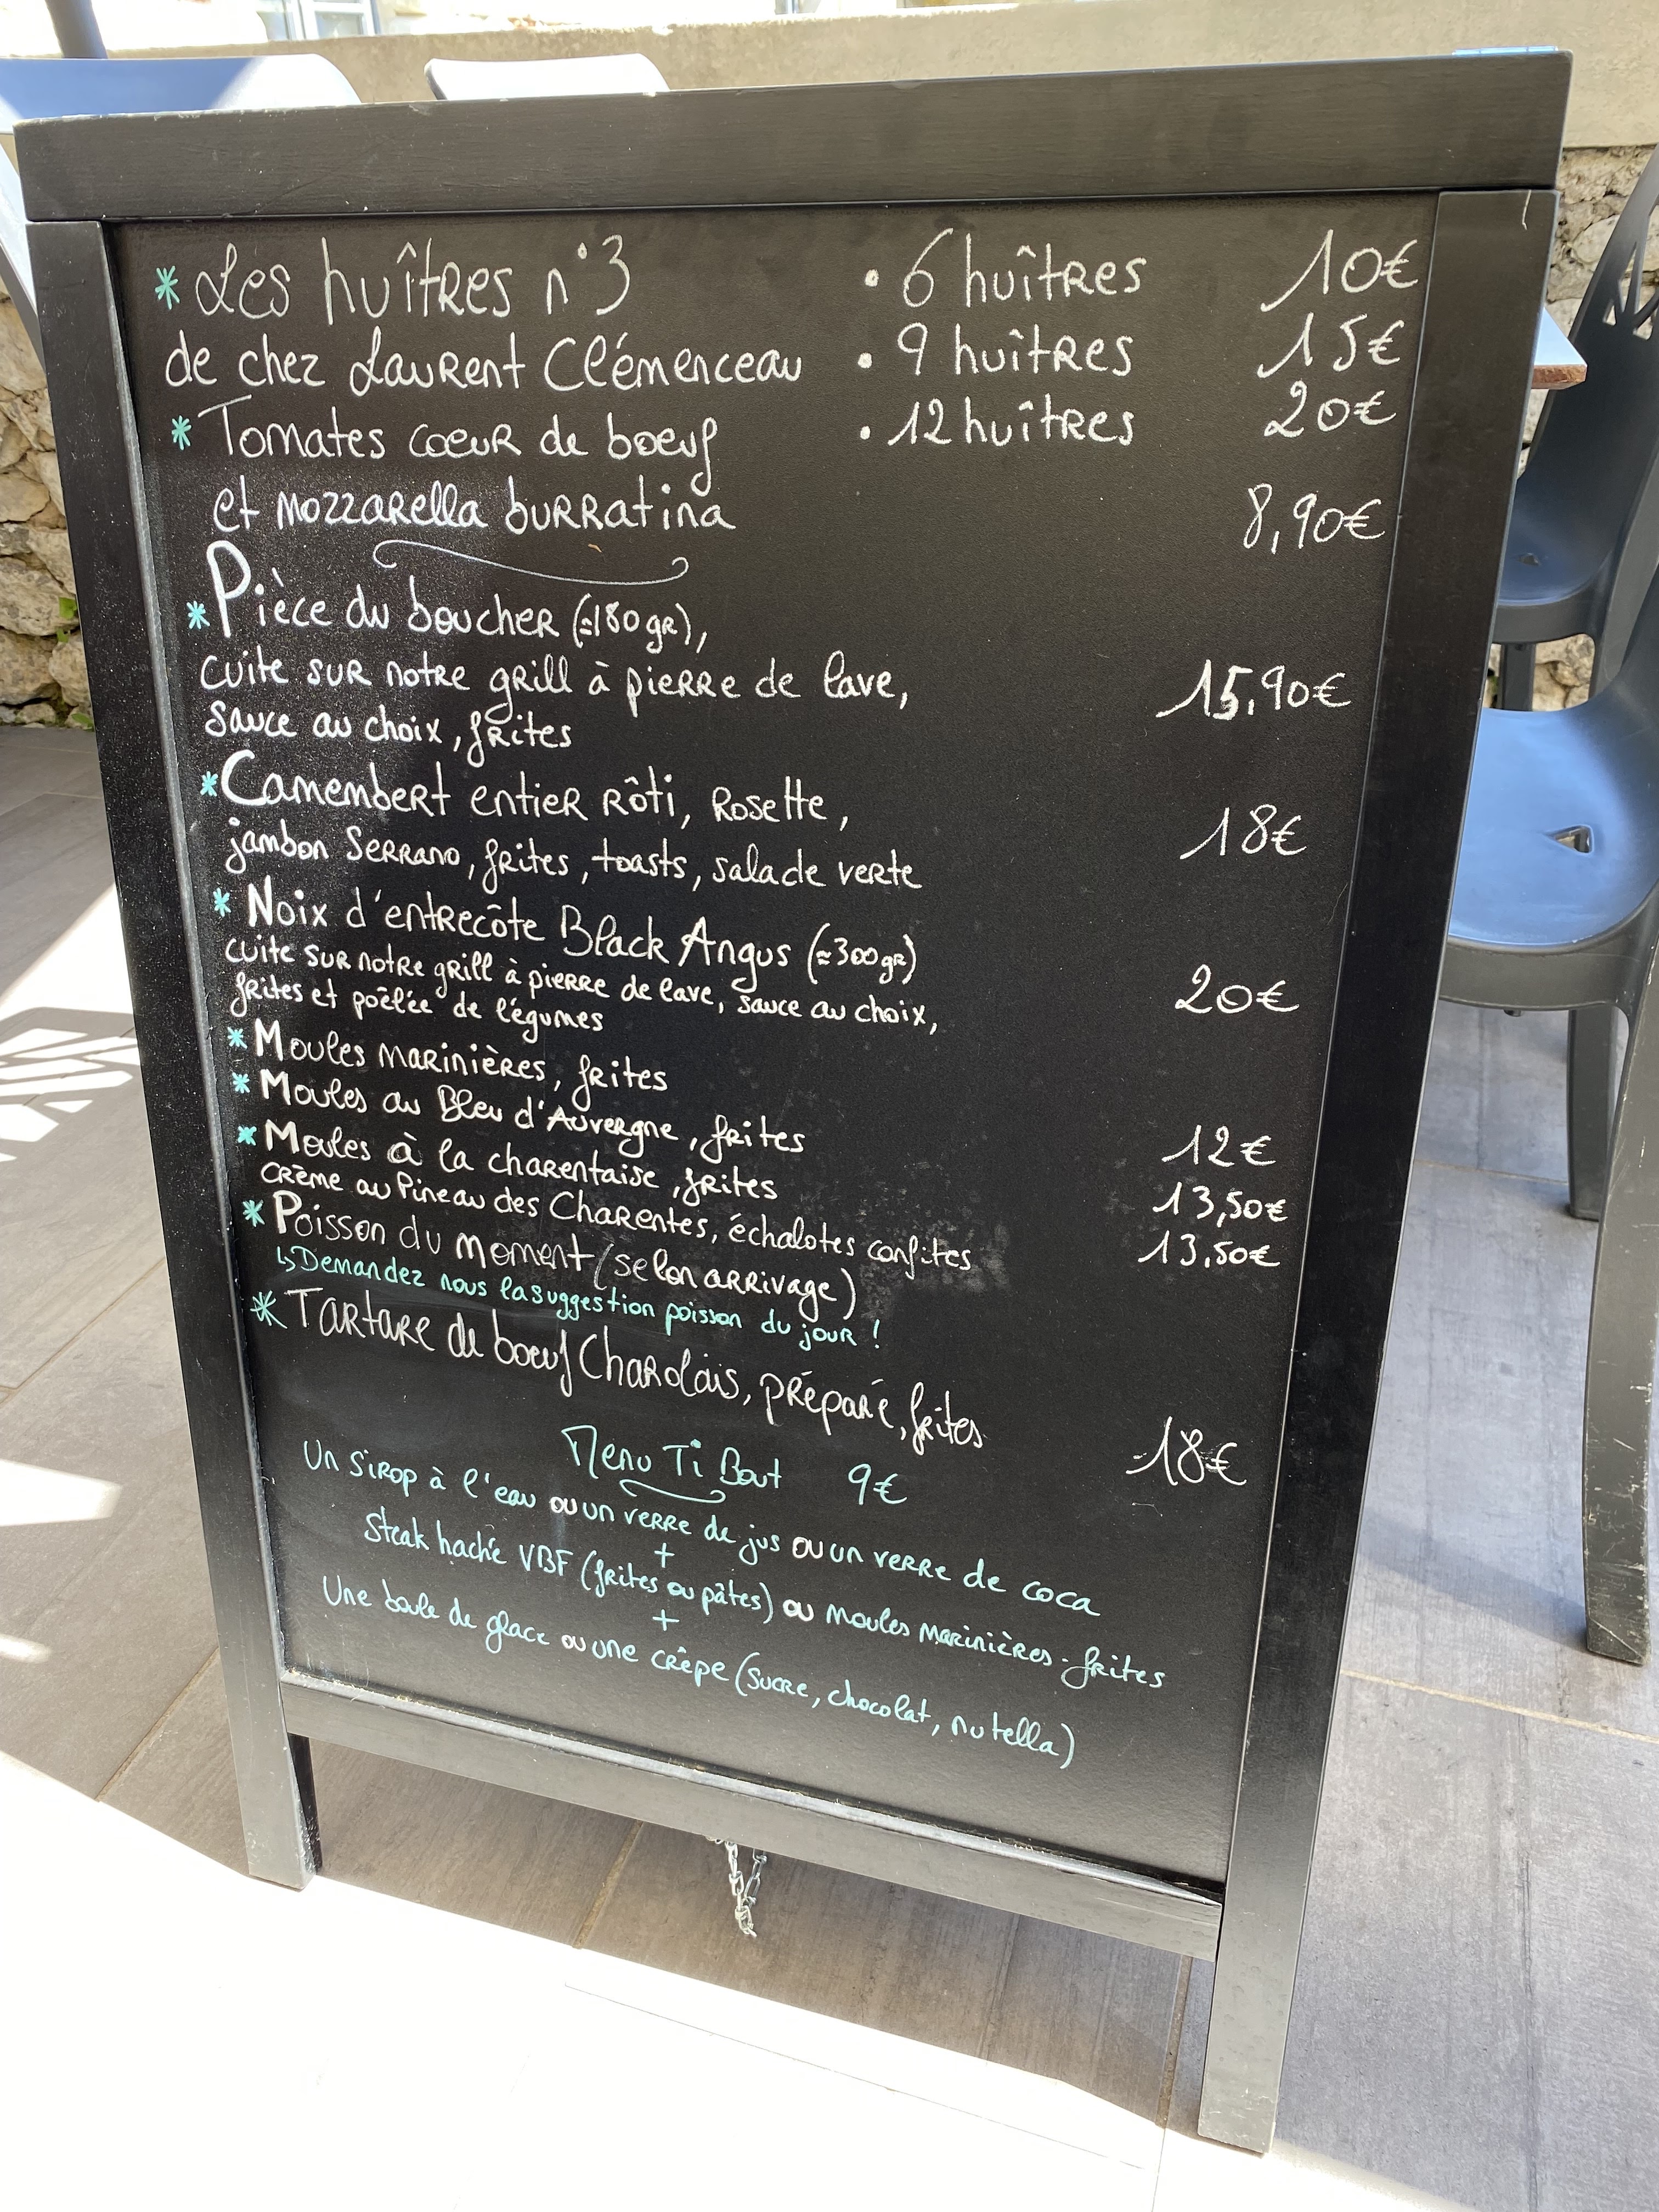 * Les huîtres n°3 • 6 huîtres 10€
de chez Laurent Clémenceau • 9 huîtres 15€
* Tomates coeur de boeuf • 12 huîtres 20€
et mozzarella burratina 8,90€
* Pièce du boucher (≃180gr),
cuite sur notre grill à pierre de lave, 15,90€
sauce au choix, frites
* Camembert entier rôti, Rosette,
jambon Serrano, frites, toasts, salade verte 18€
* Noix d'entrecôte Black Angus (≃300gr)
cuite sur notre grill à pierre de lave, sauce au choix, 20€
frites et poêlée de légumes
* Moules marinières, frites 12€
* Moules au Bleu d'Auvergne, frites 13,50€
* Moules à la charentaise, frites 13,50€
crème au Pineau des Charentes, échalotes confites
* Poisson du moment (selon arrivage)
↳ Demandez nous la suggestion poisson du jour !
* Tartare de boeuf Charolais, préparé, frites 18€
Menu Ti Bout 9€
Un sirop à l'eau ou un verre de jus ou un verre de coca
+
Steak haché VBF (frites ou pâtes) ou moules marinières-frites
+
Une boule de glace ou une crêpe (sucre, chocolat, nutella)